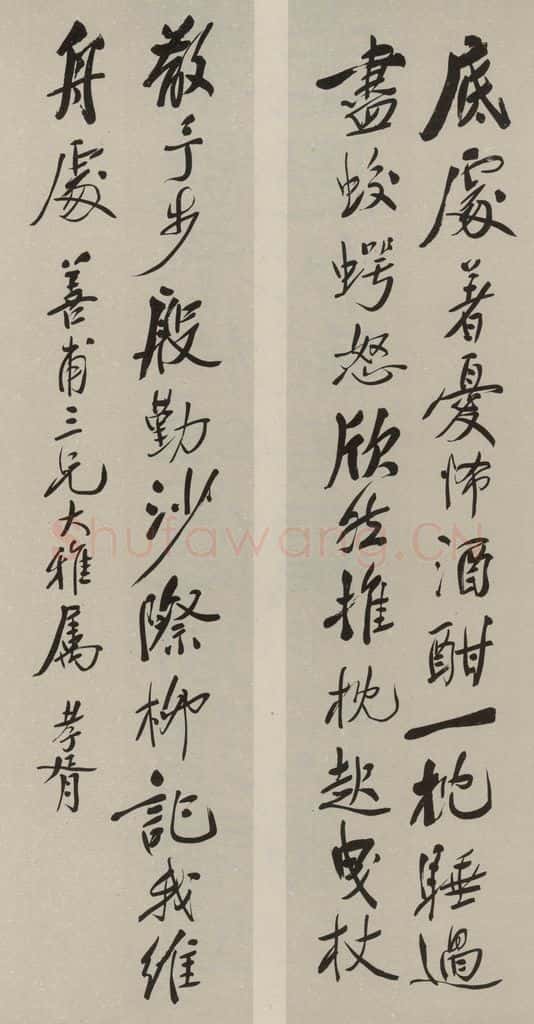 底處着憂怖酒酣一枕睡過
盡蛟𧍞怒欣然推枕起曳杖
散予步殷勤沙際柳記我維
舟處 善甫三兄大雅属 孝胥
Shufawang.CN